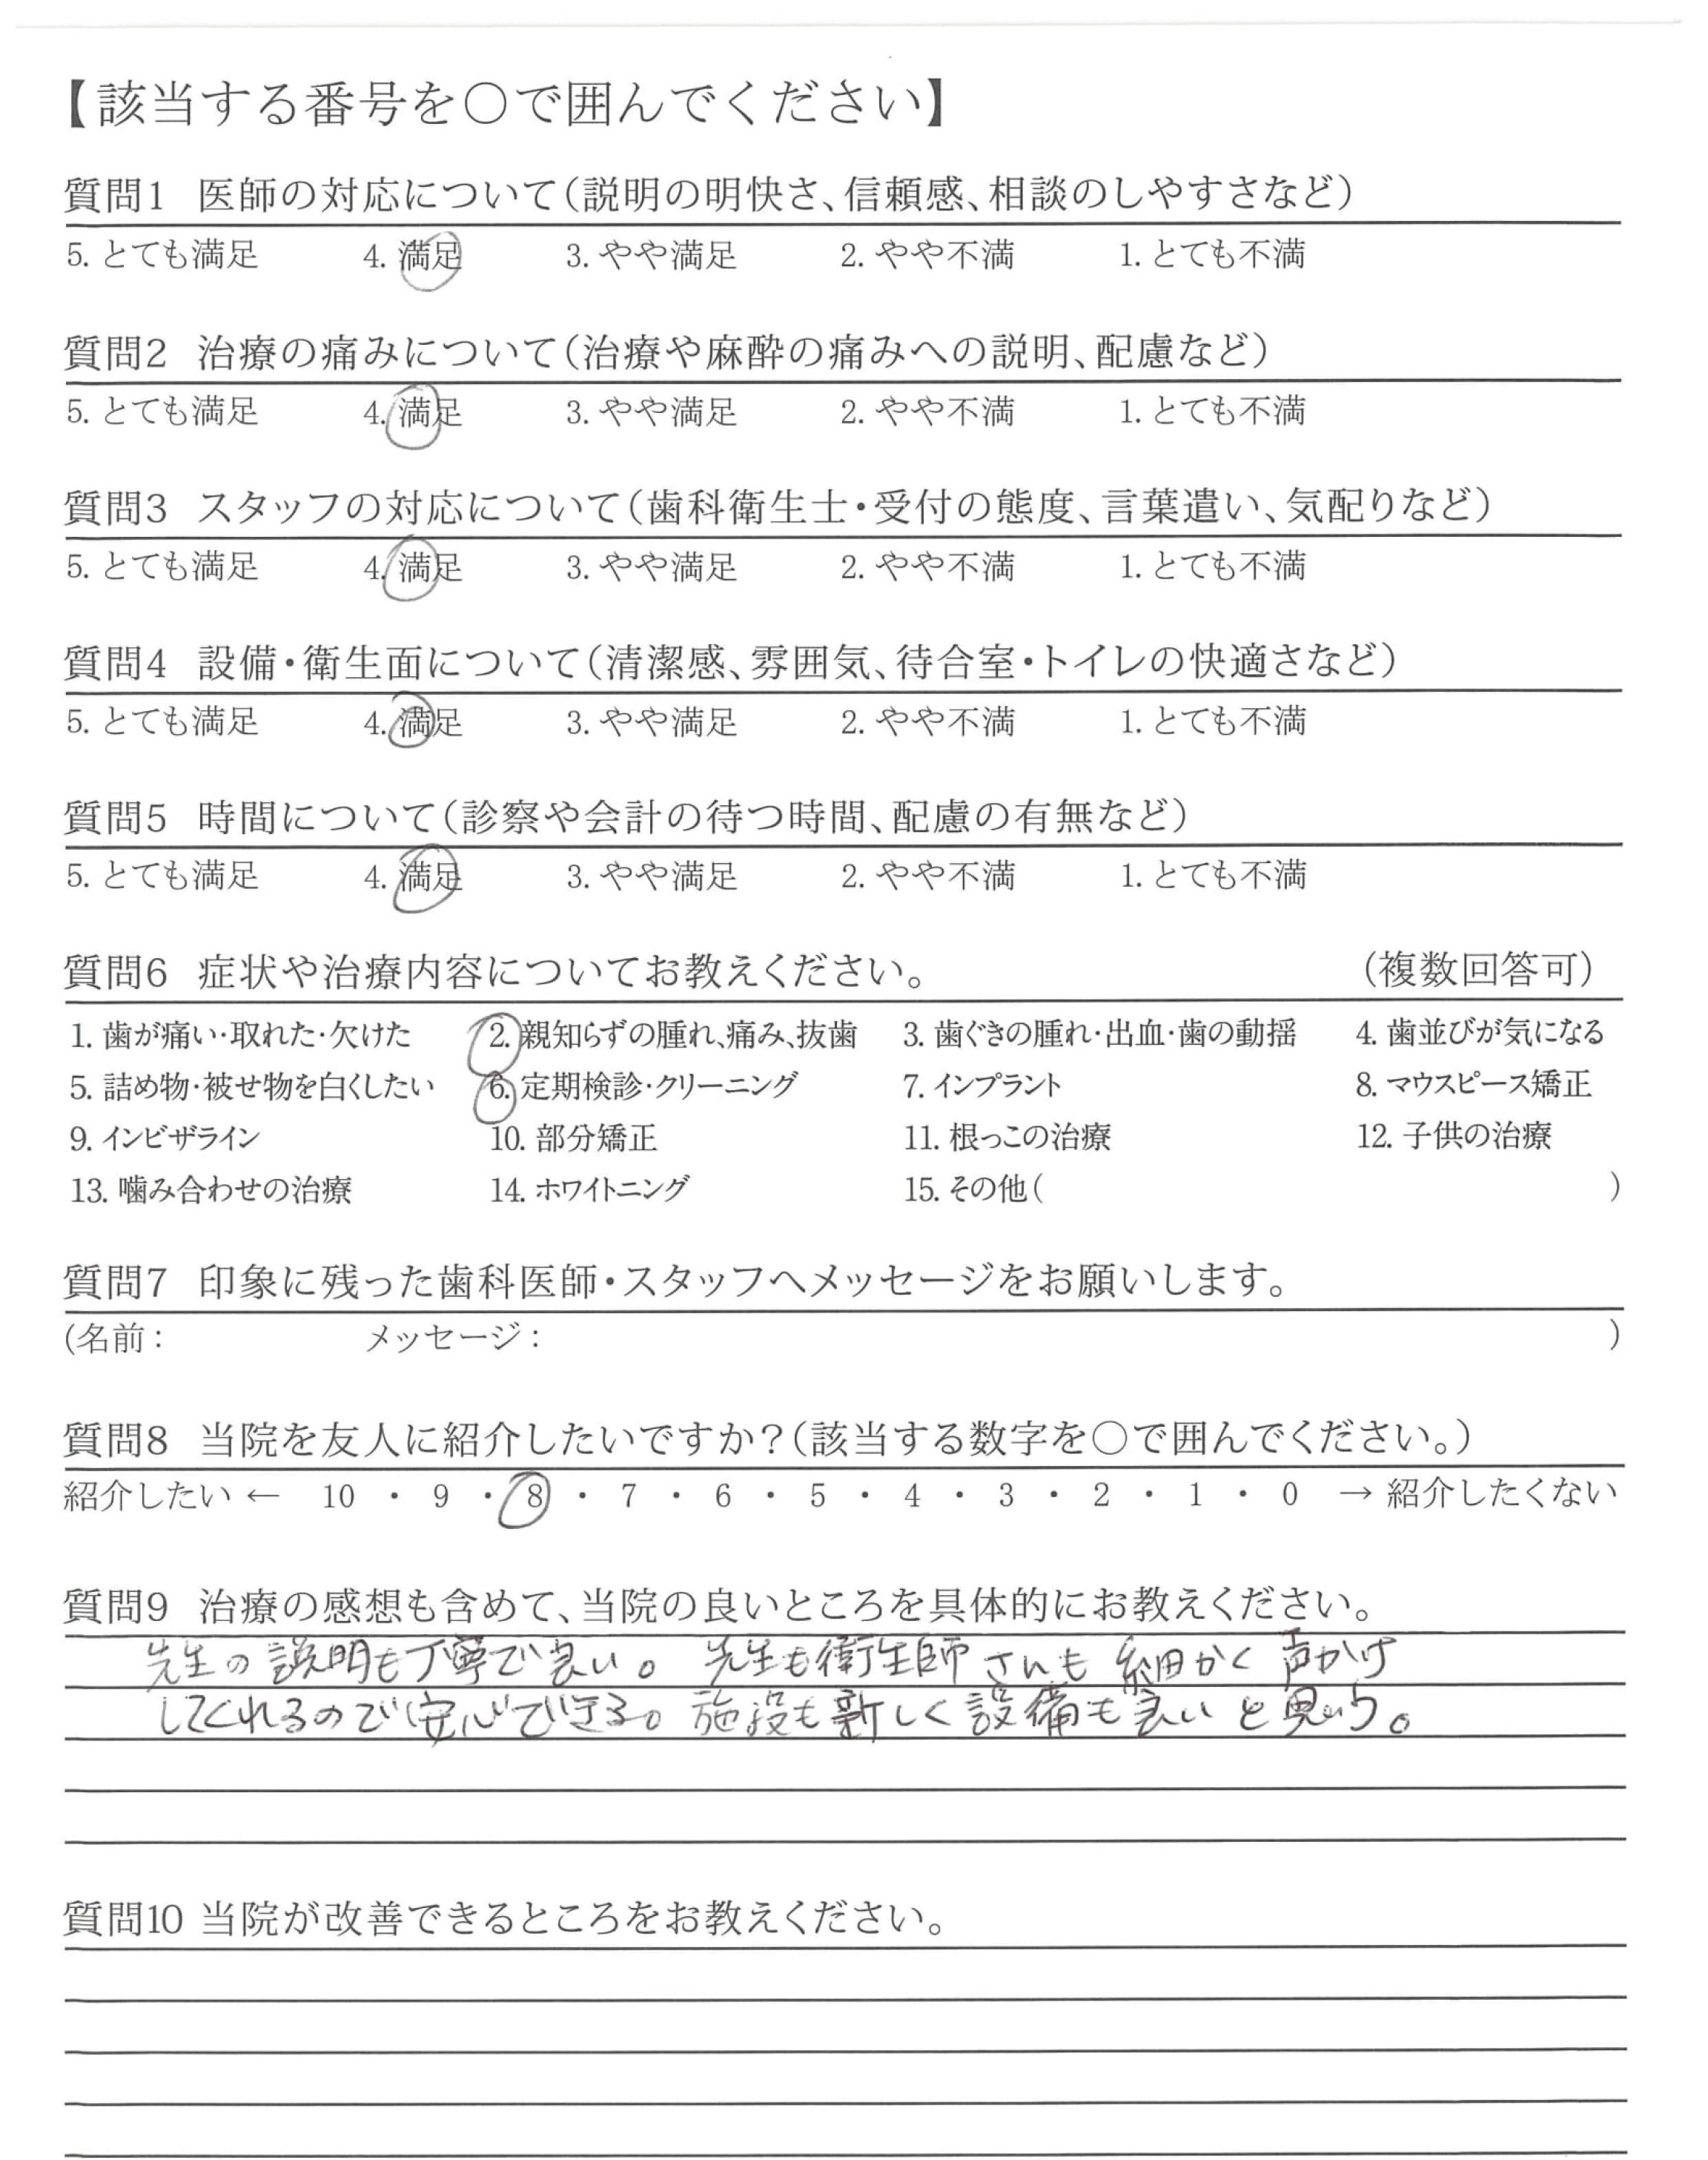 【該当する番号を〇で囲んでください】
質問1 医師の対応について(説明の明快さ、信頼感、相談のしやすさなど)
5. とても満足 4. 満足 3. やや満足 2. やや不満 1. とても不満
質問2 治療の痛みについて(治療や麻酔の痛みへの説明、配慮など)
5. とても満足 4. 満足 3. やや満足 2. やや不満 1. とても不満
質問3 スタッフの対応について(歯科衛生士・受付の態度、言葉遣い、気配りなど)
5. とても満足 4. 満足 3. やや満足 2. やや不満 1. とても不満
質問4 設備・衛生面について(清潔感、雰囲気、待合室・トイレの快適さなど)
5. とても満足 4. 満足 3. やや満足 2. やや不満 1. とても不満
質問5 時間について(診察や会計の待つ時間、配慮の有無など)
5. とても満足 4. 満足 3. やや満足 2. やや不満 1. とても不満
質問6 症状や治療内容についてお教えください。 (複数回答可)
1. 歯が痛い・取れた・欠けた 2. 親知らずの腫れ、痛み、抜歯 3. 歯ぐきの腫れ・出血・歯の動揺 4. 歯並びが気になる
5. 詰め物・被せ物を白くしたい 6. 定期検診・クリーニング 7. インプラント 8. マウスピース矯正
9. インビザライン 10. 部分矯正 11. 根っこの治療 12. 子供の治療
13. 噛み合わせの治療 14. ホワイトニング 15. その他( )
質問7 印象に残った歯科医師・スタッフへメッセージをお願いします。
(名前: メッセージ: )
質問8 当院を友人に紹介したいですか?(該当する数字を〇で囲んでください。)
紹介したい ← 10 ・ 9 ・ 8 ・ 7 ・ 6 ・ 5 ・ 4 ・ 3 ・ 2 ・ 1 ・ 0 → 紹介したくない
質問9 治療の感想も含めて、当院の良いところを具体的にお教えください。
先生の説明も丁寧で良い。先生も衛生師さんも細かく声かけ
してくれるので安心できる。施設も新しく設備も良いと思う。
質問10 当院が改善できるところをお教えください。